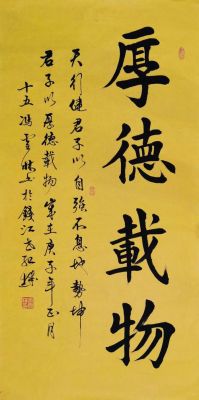 厚德載物
天行健君子以自強不息地勢坤
君子以厚德載物 歲在庚子年正月
十五馮雲 於錢江